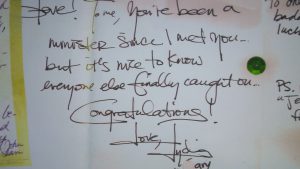 Love! To me, you've been a
minister since I met you...
but it's nice to know
everyone else finally caught on...
Congratulations!
Love, Lydia
any
To on
luck
PS.